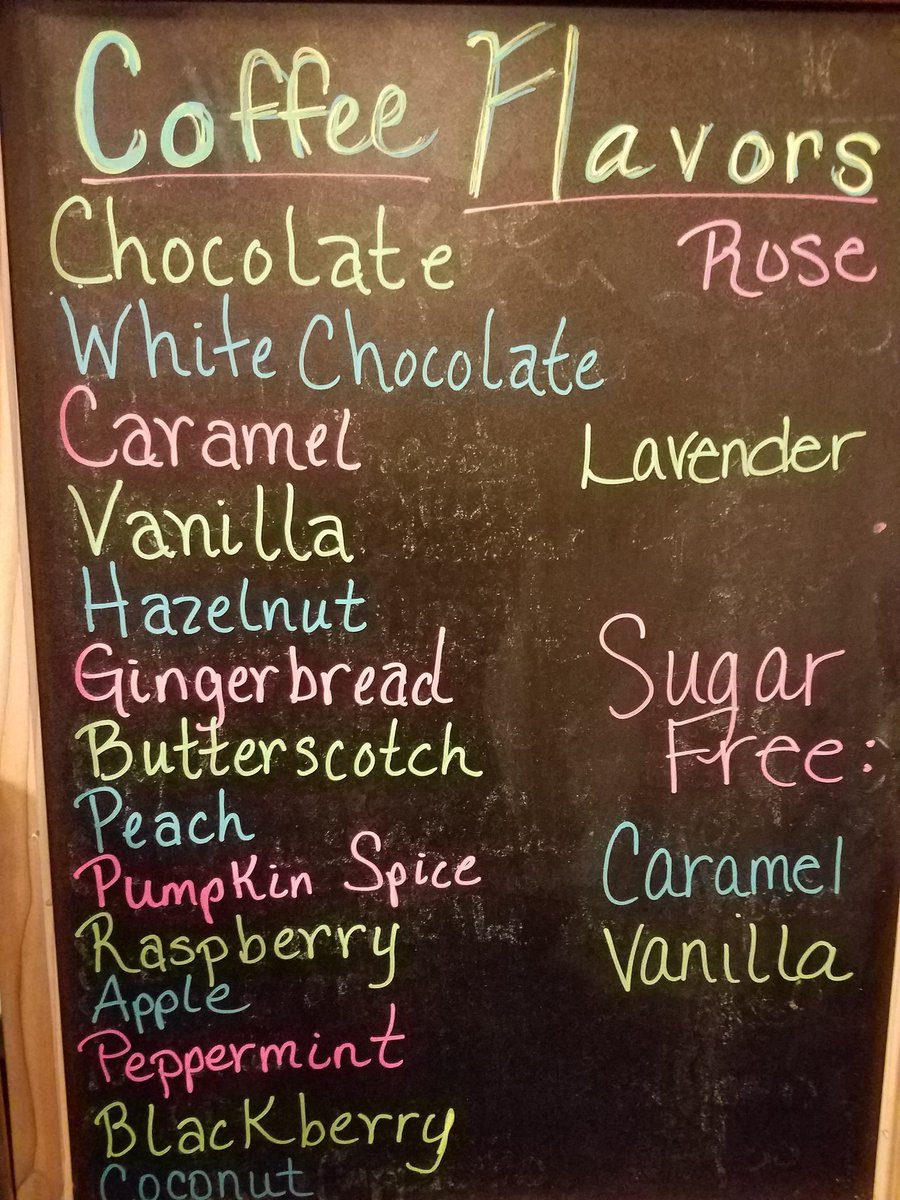 Coffee Flavors
Chocolate
White Chocolate
Caramel
Vanilla
Hazelnut
Gingerbread
Butterscotch
Peach
Pumpkin Spice
Raspberry
Apple
Peppermint
Blackberry
Coconut
Rose
Lavender
Sugar
Free:
Caramel
Vanilla